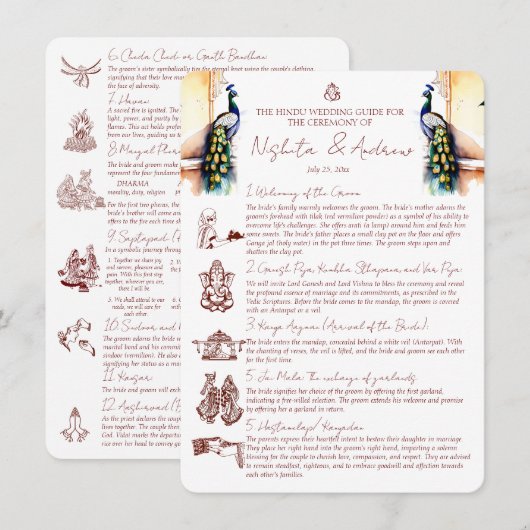 THE HINDU WEDDING GUIDE FOR
THE CEREMONY OF
Nishita & Andrew
July 25, 20xx
1. Welcoming of the Groom
The bride's family warmly welcomes the groom. The bride's mother adorns the
groom's forehead with tilak (red vermilion powder) as a symbol of his ability to
overcome life's challenges. She offers aarti (a lamp) around him and feeds him
some sweets. The bride's father places a small clay pot on the floor and offers
Ganga jal (holy water) in the pot three times. The groom steps upon and
shatters the clay pot.
2. Ganesh Puja, Kumbha Sthapana, and Var Puja:
We will invite Lord Ganesh and Lord Vishnu to bless the ceremony and reveal
the profound essence of marriage and its commitments, as prescribed in the
Vedic Scriptures. Before the bride comes to the mandap, the groom is covered with
an Antarpat or a veil.
3. Kanya Aagam (Arrival of the Bride):
The bride enters the mandap, concealed behind a white cloth (Antarpat). With
the chanting of verses, the veil is lifted, and the bride and groom see each other
for the first time.
5. Jai Mala: The exchange of garlands
The bride signifies her choice of the groom by offering the first garland,
indicating a free-willed selection. The groom extends his welcome and promise
by offering her a garland in return.
5. Hastamelap/ Kanyadan
The parents express their heartfelt intent to bestow their daughter in marriage.
They place her right hand into the groom's right hand, imparting a solemn
blessing for the couple to cherish love, compassion, and harmony. They are advised
to remain steadfast, righteous, and to embrace goodwill and affection towards
each other's families.
6. Cheda Chedi or Ganth Bandhan
The groom's sister symbolically ties the eternal knot using the couple's clothing,
signifying that their love
the face of adversity.
7. Havan
A sacred fire is ignited. The
sacrifice, light, and purity by
flames. This act holds
from our lives, guiding us
8. Mangal Phera
The bride and groom make
represent the four
DHARMA
morality, duty, religion
For the first two pheras, the
brother's will come and
offers this at each circle
9. Saptapadi
In a symbolic journey through
1. Together we share joy
and sorrow, pleasure and
pain. With this first step
together, wherever you are,
there I will be
5. We shall attend to our
needs, we will care for
each other
10. Sindoor and
The groom adorns the bride
marital bond and his
sindoor (vermilion). He also
signifying a
11. Kansar
The bride and groom will
12. Aashirvad
As the priest declares the
lives together. The couple then
God. Vidai marks the departure
rice over her head to convey